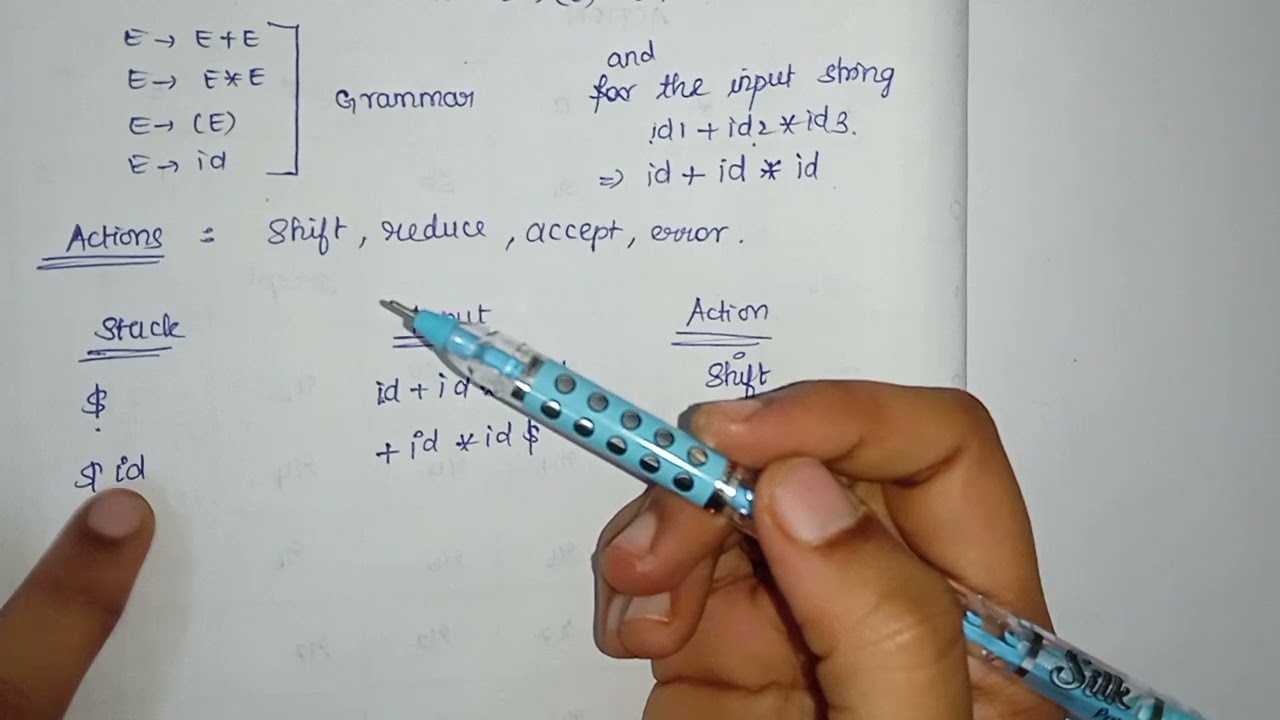 E → E + E
E → E * E
E → (E)
E → id
Grammar
and
for the input string
id1 + id2 * id3.
⇒ id + id * id
Actions : Shift, reduce, accept, error.
Stack Action
$ id + id Shift
$ id + id * id $
Silk